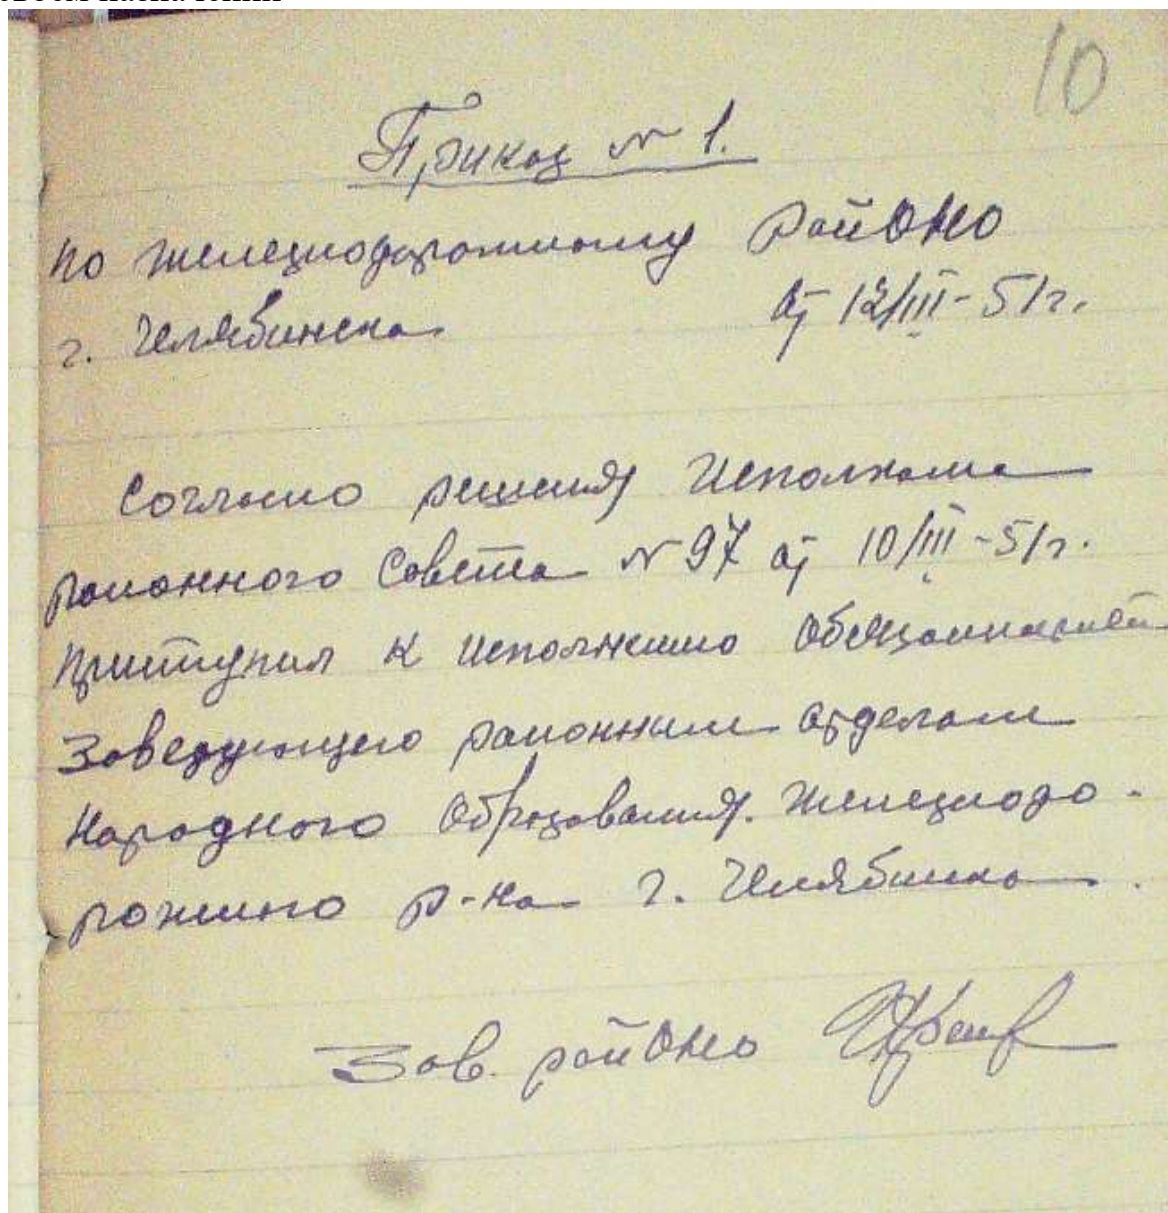 10
Приказ № 1.
по железнодорожному РайОНО
г. Челябинска от 12/III-51г.
Согласно решения Исполкома
районного Совета № 97 от 10/III-51г.
приступил к исполнению обязанностей
Заведующего районным отделом
Народного Образования. Железнодо-
рожного р-на г. Челябинска.
Зав. райОНО